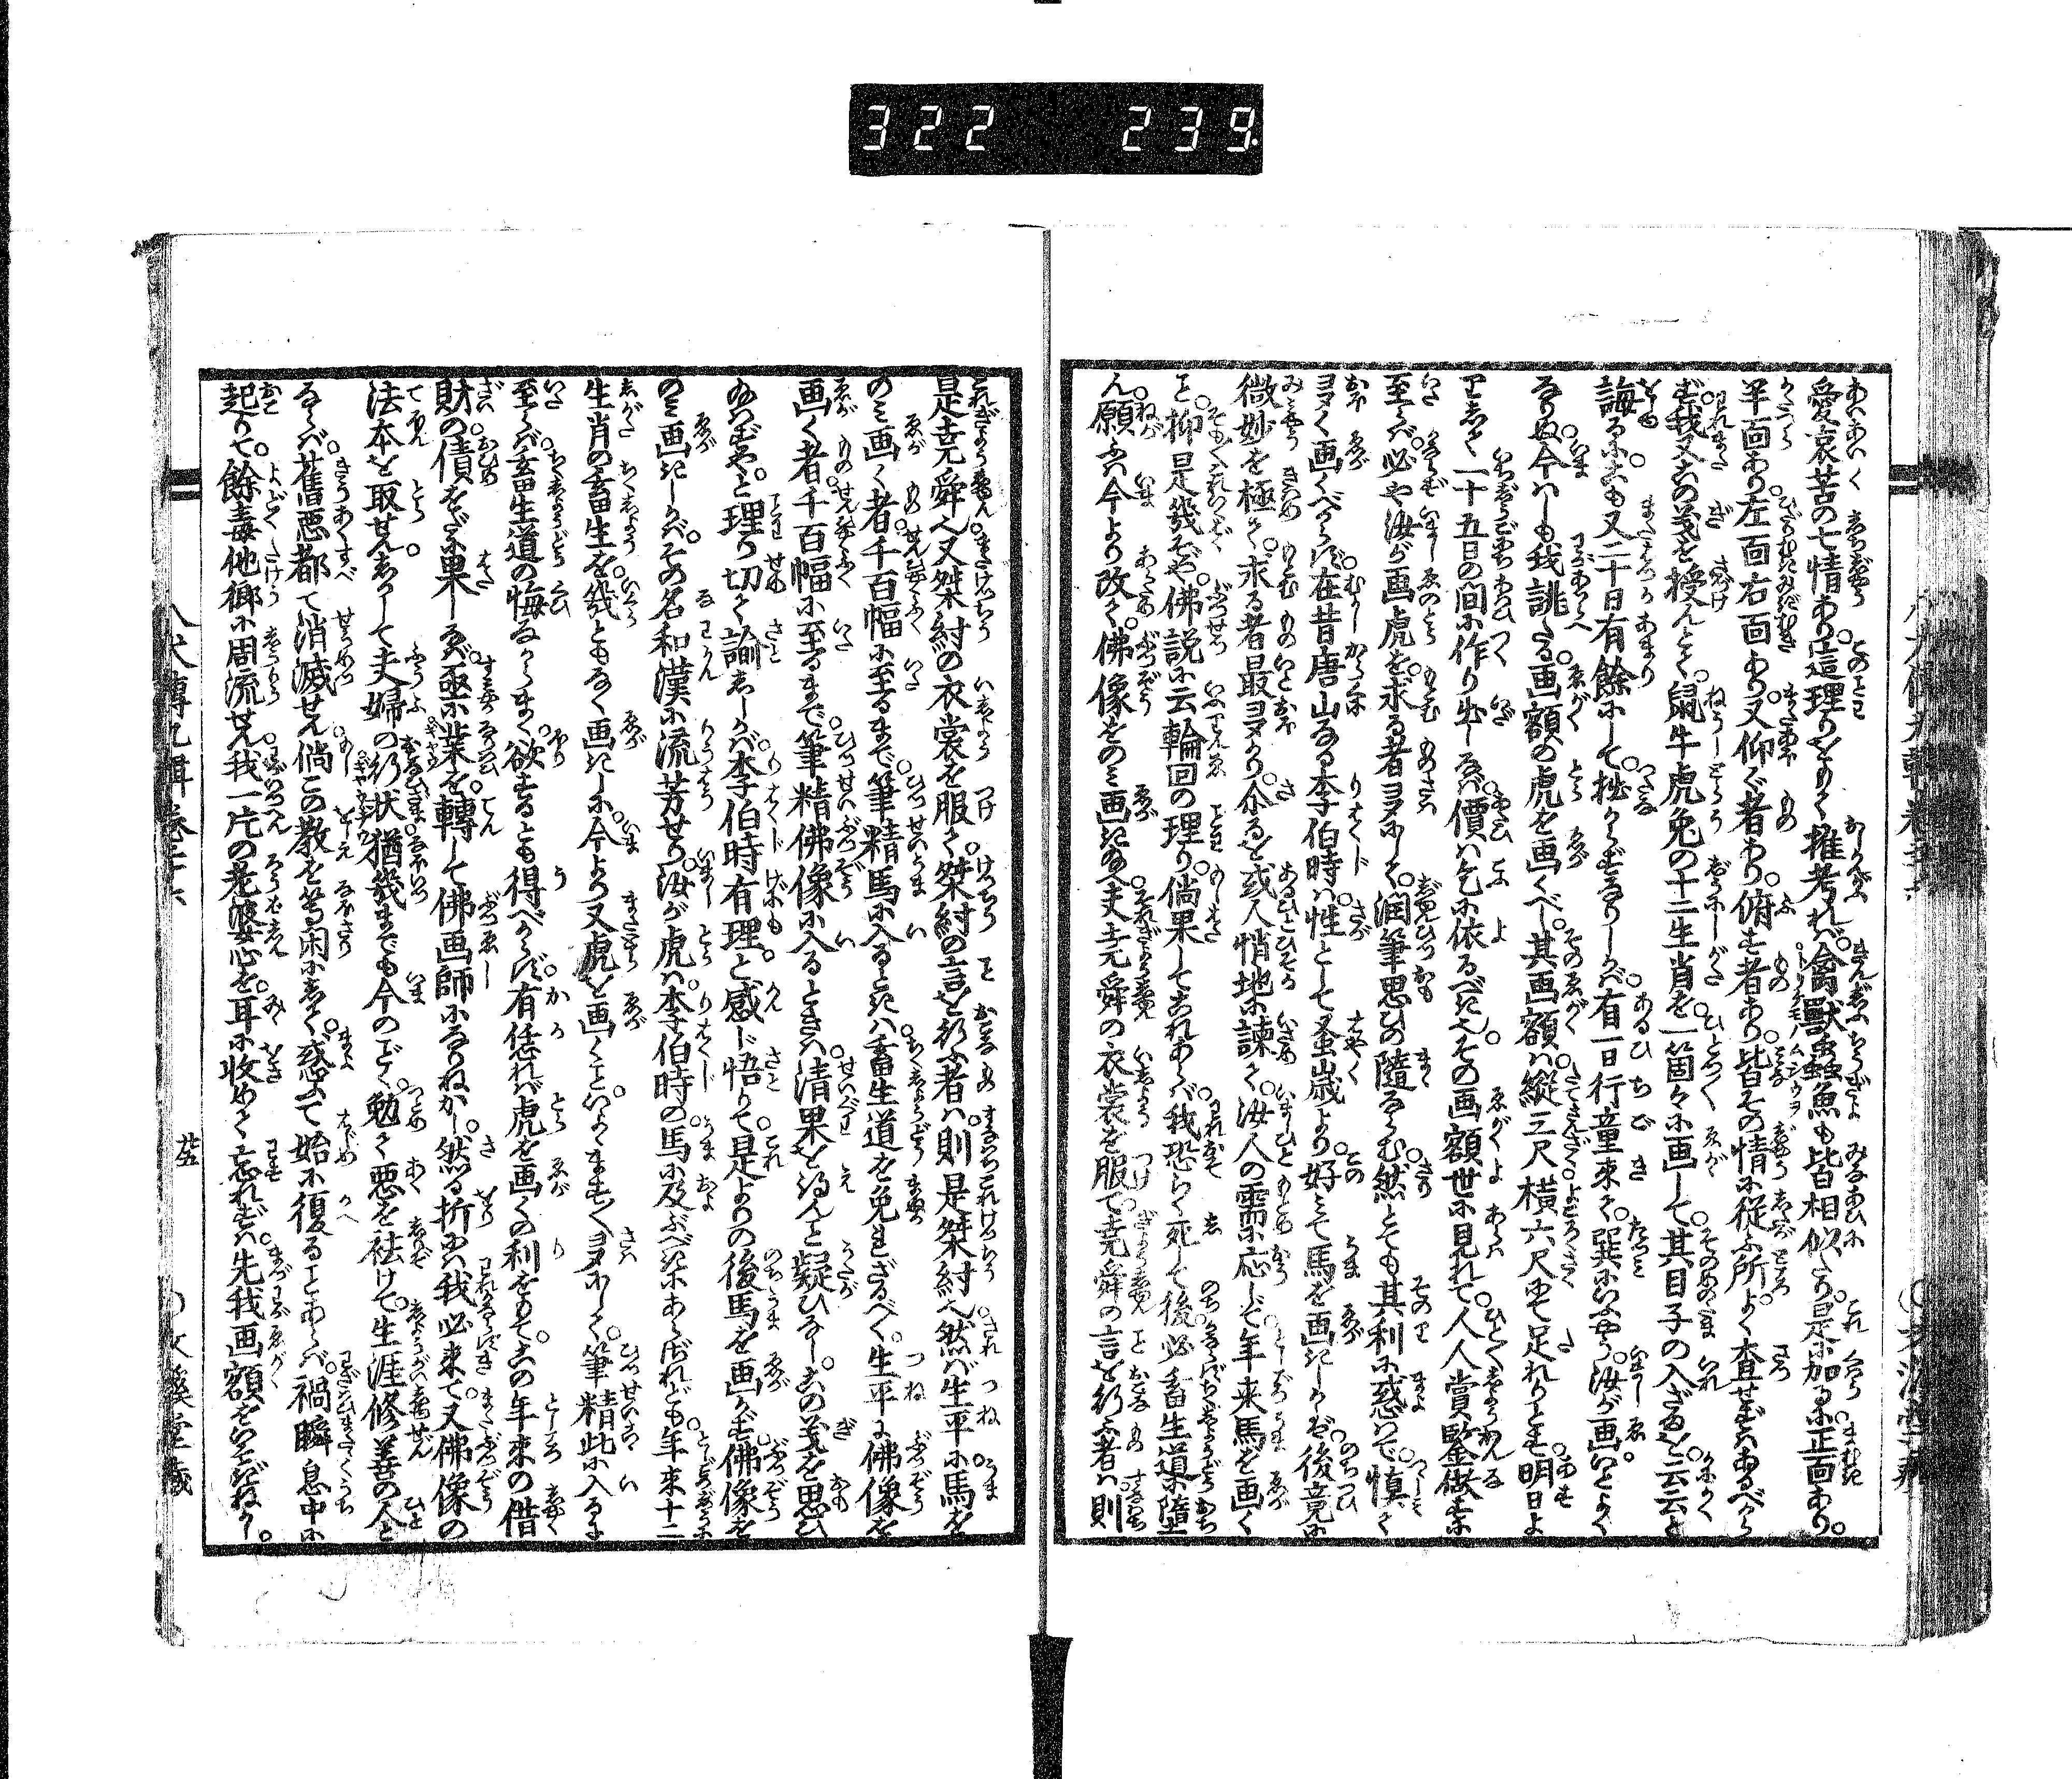 322 239
愛哀苦の七情あり。這理りをもて推考れば、禽獸蟲魚も皆相似たり。是に加るに正面あり。
半面あり左面右面あり。又仰ぐ者あり。俯す者あり。皆その情に従ふ所、よく査せずはあるべから
ず。我又この義を授んとて、鼠牛虎兔の十二生肖を、一箇々々に画して、其目子の入ざるを、云云と
誨るに、こも又二十日有餘にして、拙からずなりしかば、有一日行童来て、巽にいふやう、汝が画、いとよく
なりぬ。今はしも我誂たる、画額の虎を画くべし。其画額は、縱三尺横六尺にて足れりとす。明日よ
りして、一十五日の間に作り出しなば、價は乞に依るべき也。その画額世に見れて、人人賞鑒做すに
至らば、必や汝が画虎を、求る者多にして、潤筆思ひの隨ならむ。然とても其利に惑はで、慎て
多く画くべからず。在昔唐山なる李伯時は、性として蚤歳より、好みて馬を画きしかば、後竟に
微妙を極て、求る者最多かり。介るを或人悄地に諫て、汝人の需に応じて、年来馬を画く
こと、抑是幾ぞや。佛説に云輪回の理り、倘果してこれあらば、我恐らく死して後必畜生道に堕
ん。願ふは今より改て、佛像をのみ画き給へ。夫尭舜の衣裳を服て、尭舜の言を行ふ者は、則
是尭舜人。又桀紂の衣裳を服て、桀紂の言を行ふ者は、則是桀紂人。然ば生平に馬を
のみ画く者、千百幅に至るまで、筆精馬に入るときは、畜生道を免れざるべく、生平に佛像を
画く者、千百幅に至るまで、筆精佛像に入るときは、清果を得んこと疑ひなし。この義を思ひ
給はずや。と理り切て諭ししかば、李伯時有理と感じ悟りて、是よりの後馬を画かず、佛像を
のみ画きしかば、その名和漢に流芳せり。汝が虎は、李伯時の馬に及ぶべきにあらざれども、年来十二
生肖の畜生を、幾ともなく画きしに、今より又虎を画くこと、いよいよますます多にして、筆精此に入るに
至らば、畜生道の悔なからまく、欲するとも得べからず。有恁れば虎を画くの利をもて、この年来の借
財の債をだに果しなば、亟に業を轉して佛画師になりねかし。然る折には我必来て、又佛像の
法本を取せん。しかして夫婦の行状、猶幾までも今のごとく、勉て悪を祛けて、生涯修善の人と
ならば、舊悪都て消滅せん。倘この教を等閑にして、惑ふて始に復ることあらば、禍瞬息中に
起りて、餘毒他郷に周流せん。我一片の老婆心を、耳に收めて忘れずは、先我画額をいそぎねかし。
八犬傳九輯巻之六
廿五
文溪堂蔵